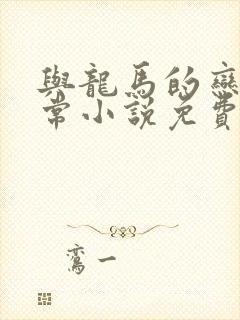 與龍馬的戀
常小說免費
鸞一